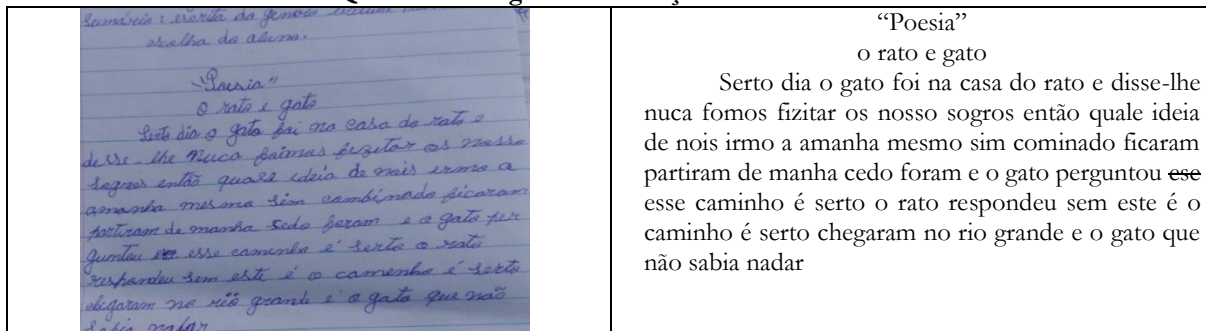 Sumário: escrita do genero
escolha do aluno.
"Poesia"
O rato e gato
Serto dia o gato foi na casa do rato e
desse-lhe Nuca foimos fizitar os nosso
sogros então quale ideia de nois irmo a
amanha mesmo sim combinado ficaram
partiram de manha sedo foram e o gato per
guntou ese esse caminho é serto o rato
respondeu sem este é o camenho é serto
chegaram no rio grande e o gato que não
sabia nadar
“Poesia”
o rato e gato
Serto dia o gato foi na casa do rato e disse-lhe
nuca fomos fizitar os nosso sogros então quale ideia
de nois irmo a amanha mesmo sim cominado ficaram
partiram de manha cedo foram e o gato perguntou ese
esse caminho é serto o rato respondeu sem este é o
caminho é serto chegaram no rio grande e o gato que
não sabia nadar